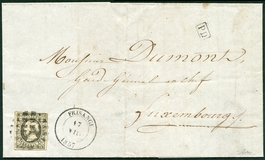 PD
Monsieur Dumont,
Garde Général en chef
Luxembourg
FRISANGE
17
1857